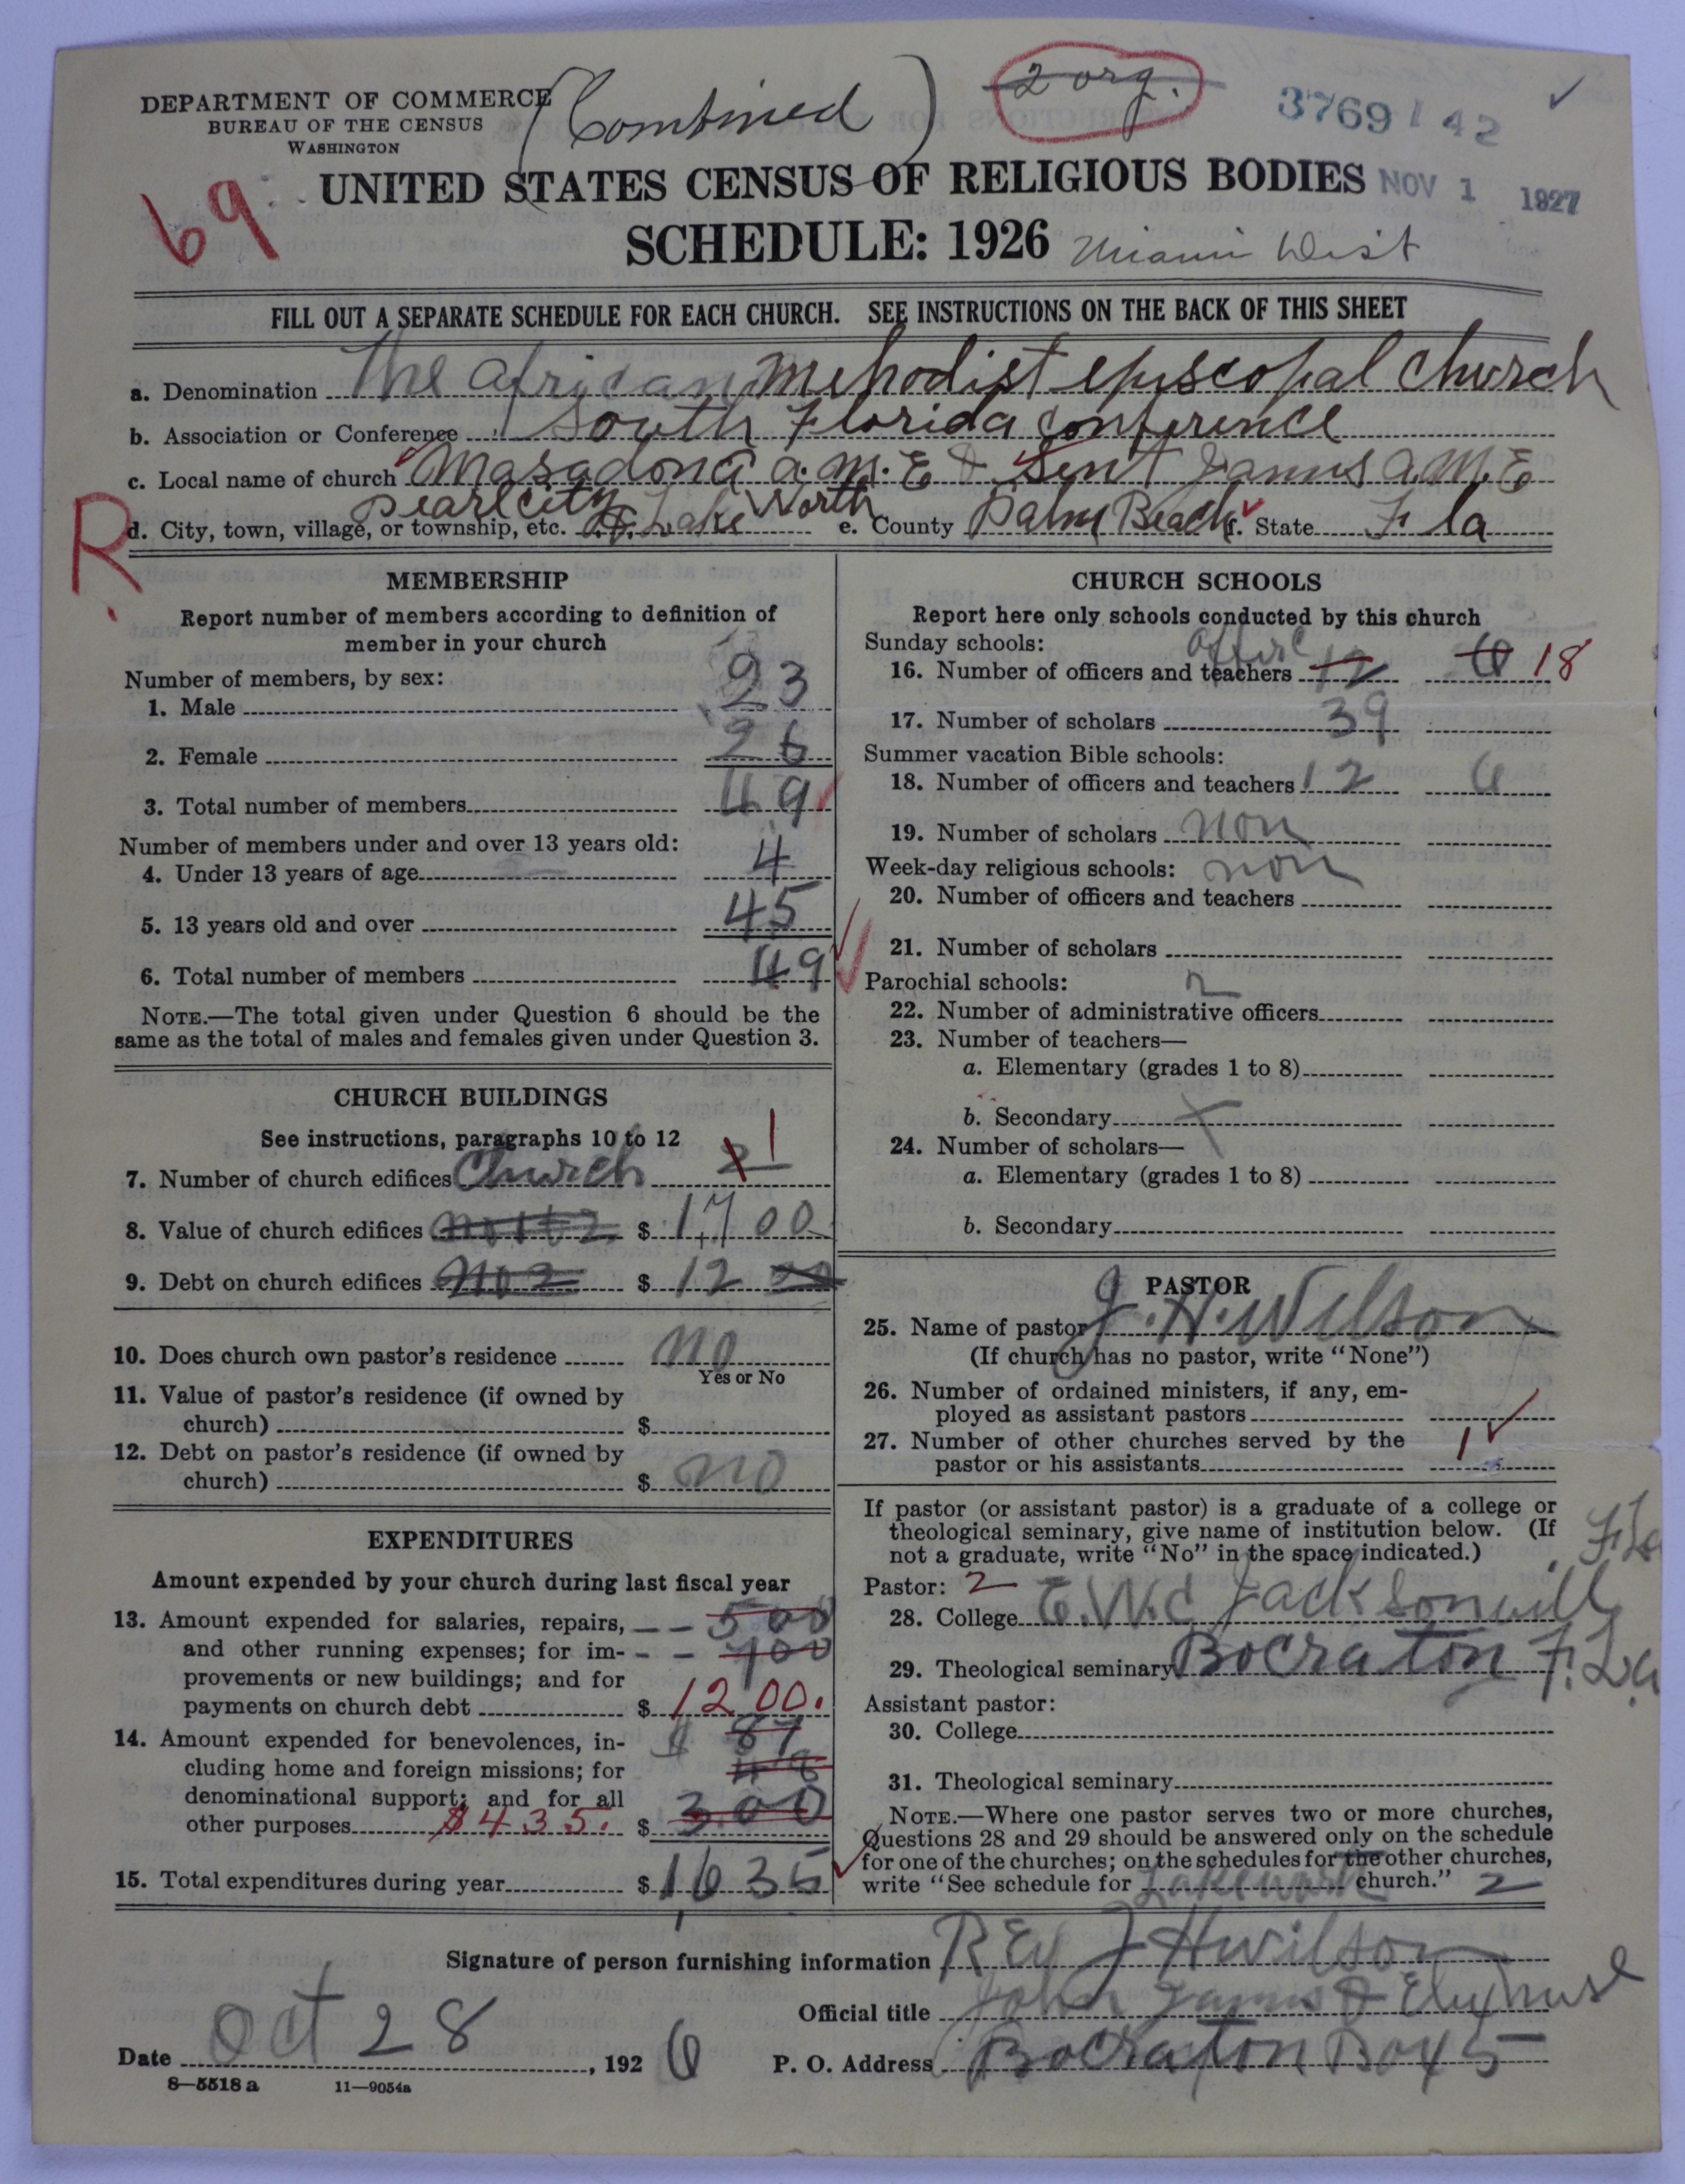 DEPARTMENT OF COMMERCE
BUREAU OF THE CENSUS
WASHINGTON
(Combined)
2 org.
3769 142
69
UNITED STATES CENSUS OF RELIGIOUS BODIES
NOV 1 1927
SCHEDULE: 1926
Miami Dist
FILL OUT A SEPARATE SCHEDULE FOR EACH CHURCH. SEE INSTRUCTIONS ON THE BACK OF THIS SHEET
a. Denomination The African Methodist episcopal Church
b. Association or Conference South Florida Conference
c. Local name of church Masadona a.M.E & Sent James a.M.E
Pearl city
R d. City, town, village, or township, etc. & Lake Worth e. County Palm Beach f. State Fla
MEMBERSHIP
Report number of members according to definition of
member in your church
Number of members, by sex:
1. Male 23
2. Female 26
3. Total number of members 49
Number of members under and over 13 years old:
4. Under 13 years of age 4
5. 13 years old and over 45
6. Total number of members 49
NOTE.—The total given under Question 6 should be the
same as the total of males and females given under Question 3.
CHURCH BUILDINGS
See instructions, paragraphs 10 to 12
7. Number of church edifices Church 2 1
8. Value of church edifices $ 1,700
9. Debt on church edifices no 2 $ 12 00
10. Does church own pastor's residence no
Yes or No
11. Value of pastor's residence (if owned by
church) $
12. Debt on pastor's residence (if owned by
church) $ no
EXPENDITURES
Amount expended by your church during last fiscal year
13. Amount expended for salaries, repairs, 500
and other running expenses; for im- 700
provements or new buildings; and for
payments on church debt $ 1200.
14. Amount expended for benevolences, in- $ 87
cluding home and foreign missions; for 48
denominational support; and for all
other purposes $435. $ 300
15. Total expenditures during year $ 1635
CHURCH SCHOOLS
Report here only schools conducted by this church
Sunday schools:
16. Number of officers and teachers 12 6 18
17. Number of scholars 39
Summer vacation Bible schools:
18. Number of officers and teachers 12 6
19. Number of scholars non
Week-day religious schools: non
20. Number of officers and teachers
21. Number of scholars
Parochial schools: n
22. Number of administrative officers
23. Number of teachers—
a. Elementary (grades 1 to 8)
b. Secondary
24. Number of scholars—
a. Elementary (grades 1 to 8)
b. Secondary
PASTOR
25. Name of pastor J. H. Wilson
(If church has no pastor, write "None")
26. Number of ordained ministers, if any, em-
ployed as assistant pastors
27. Number of other churches served by the
pastor or his assistants 1
If pastor (or assistant pastor) is a graduate of a college or
theological seminary, give name of institution below. (If
not a graduate, write "No" in the space indicated.)
Pastor: 2
28. College E.W.C Jacksonvill Fla
29. Theological seminary Bocraton F.La
Assistant pastor:
30. College
31. Theological seminary
NOTE.—Where one pastor serves two or more churches,
Questions 28 and 29 should be answered only on the schedule
for one of the churches; on the schedules for the other churches,
write "See schedule for church." 2
Signature of person furnishing information Rev J H Wilson
Official title John James
Date Oct 28, 1926 P. O. Address Bocraton Box 5
8—5518 a 11—9054a